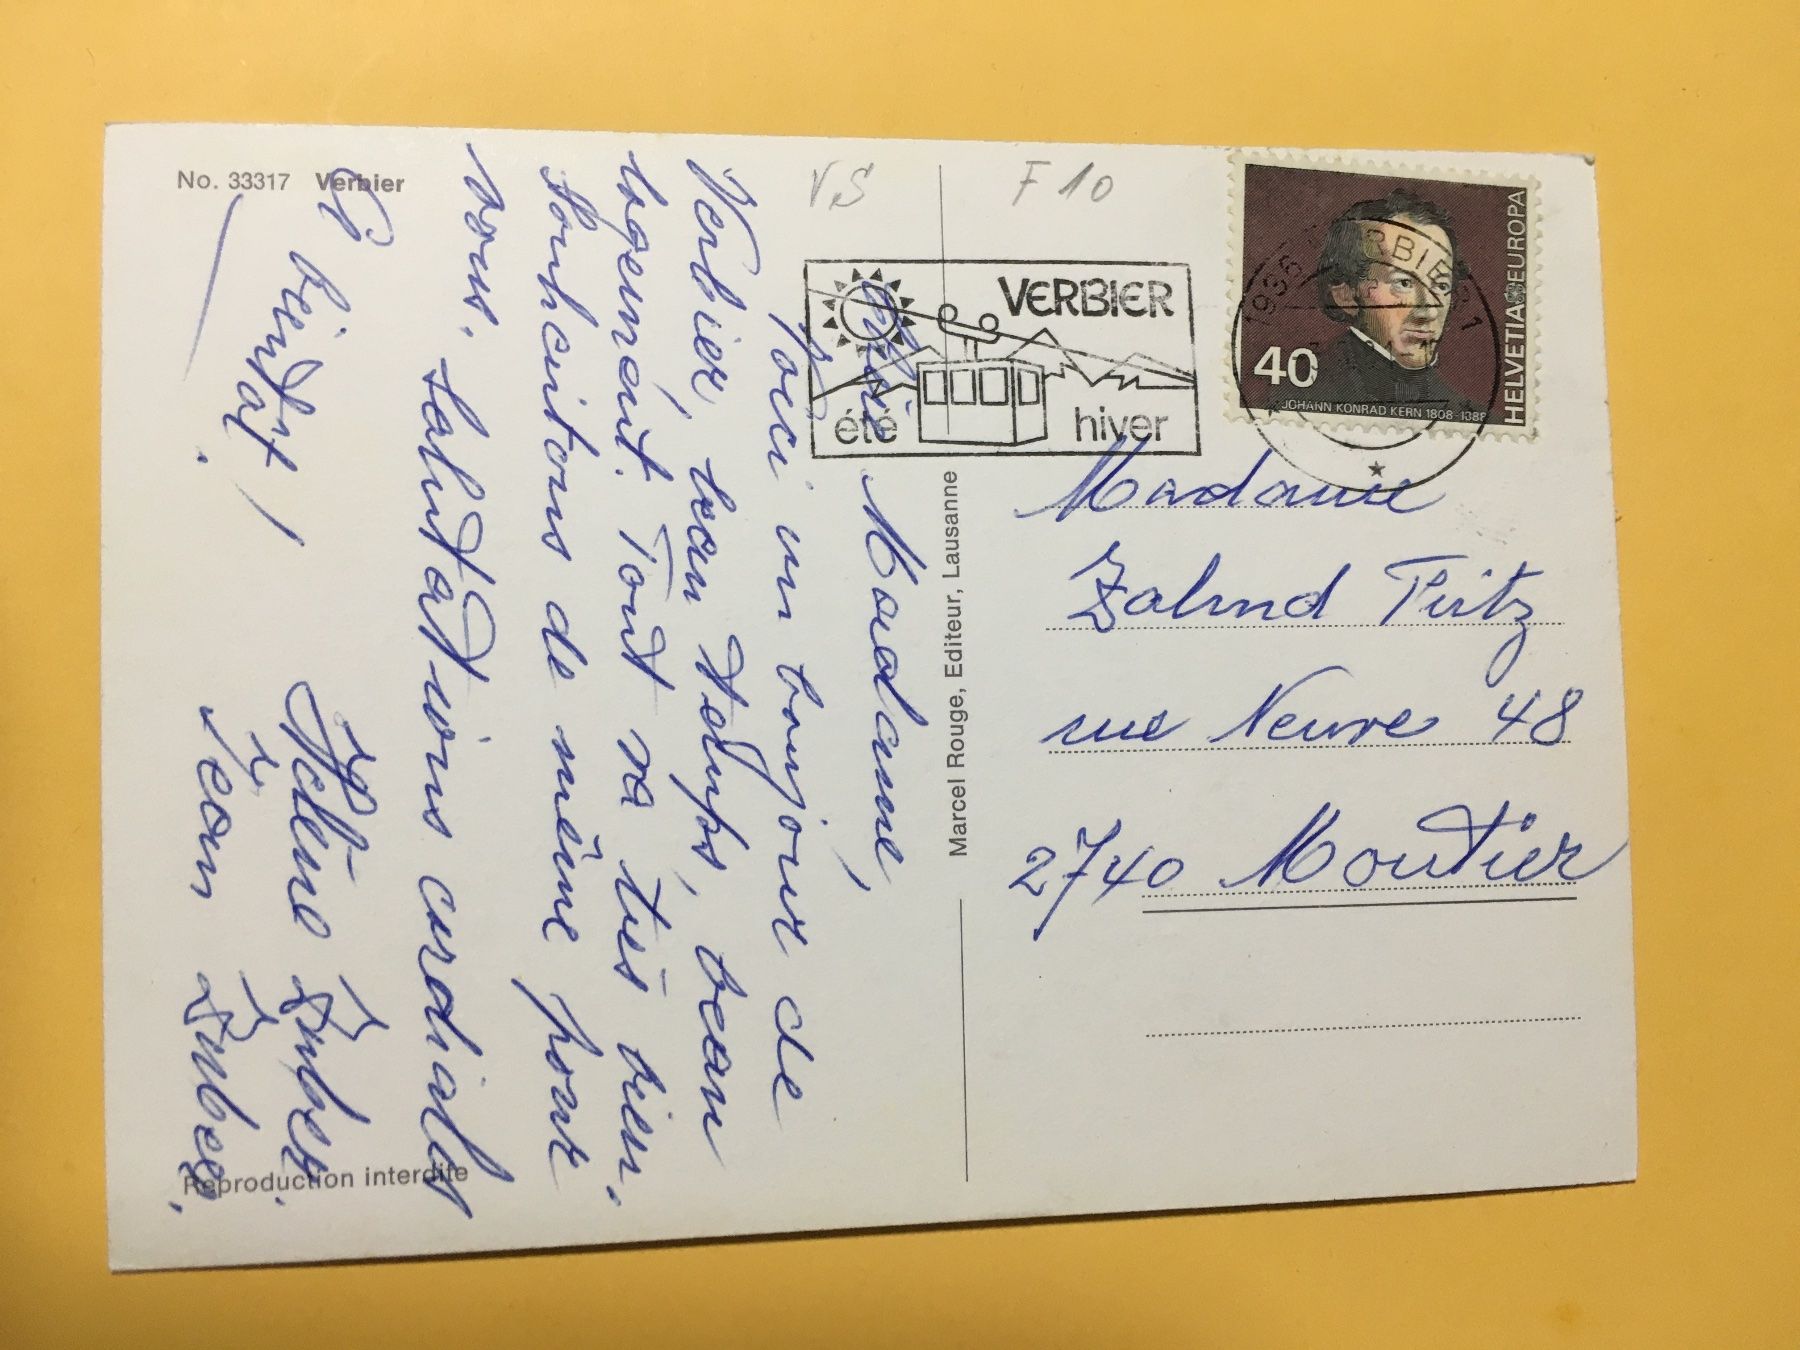 No. 33317 Verbier
VS
F 10
VERBIER
été hiver
1936 VERBIER 1
40
HELVETIA EUROPA
JOHANN KONRAD KERN 1808-1888
Chère Madame,
Voici un bonjour de
Verbier, beau temps, beau
logement. Tout va très bien.
Souhaitons de même pour
vous. Salutations cordiales
à bientôt!
Hélène Zuber.
Jean Zuber.
Reproduction interdite
Marcel Rouge, Editeur, Lausanne
Madame
Zahnd Fritz
rue Neuve 48
2740 Moutier